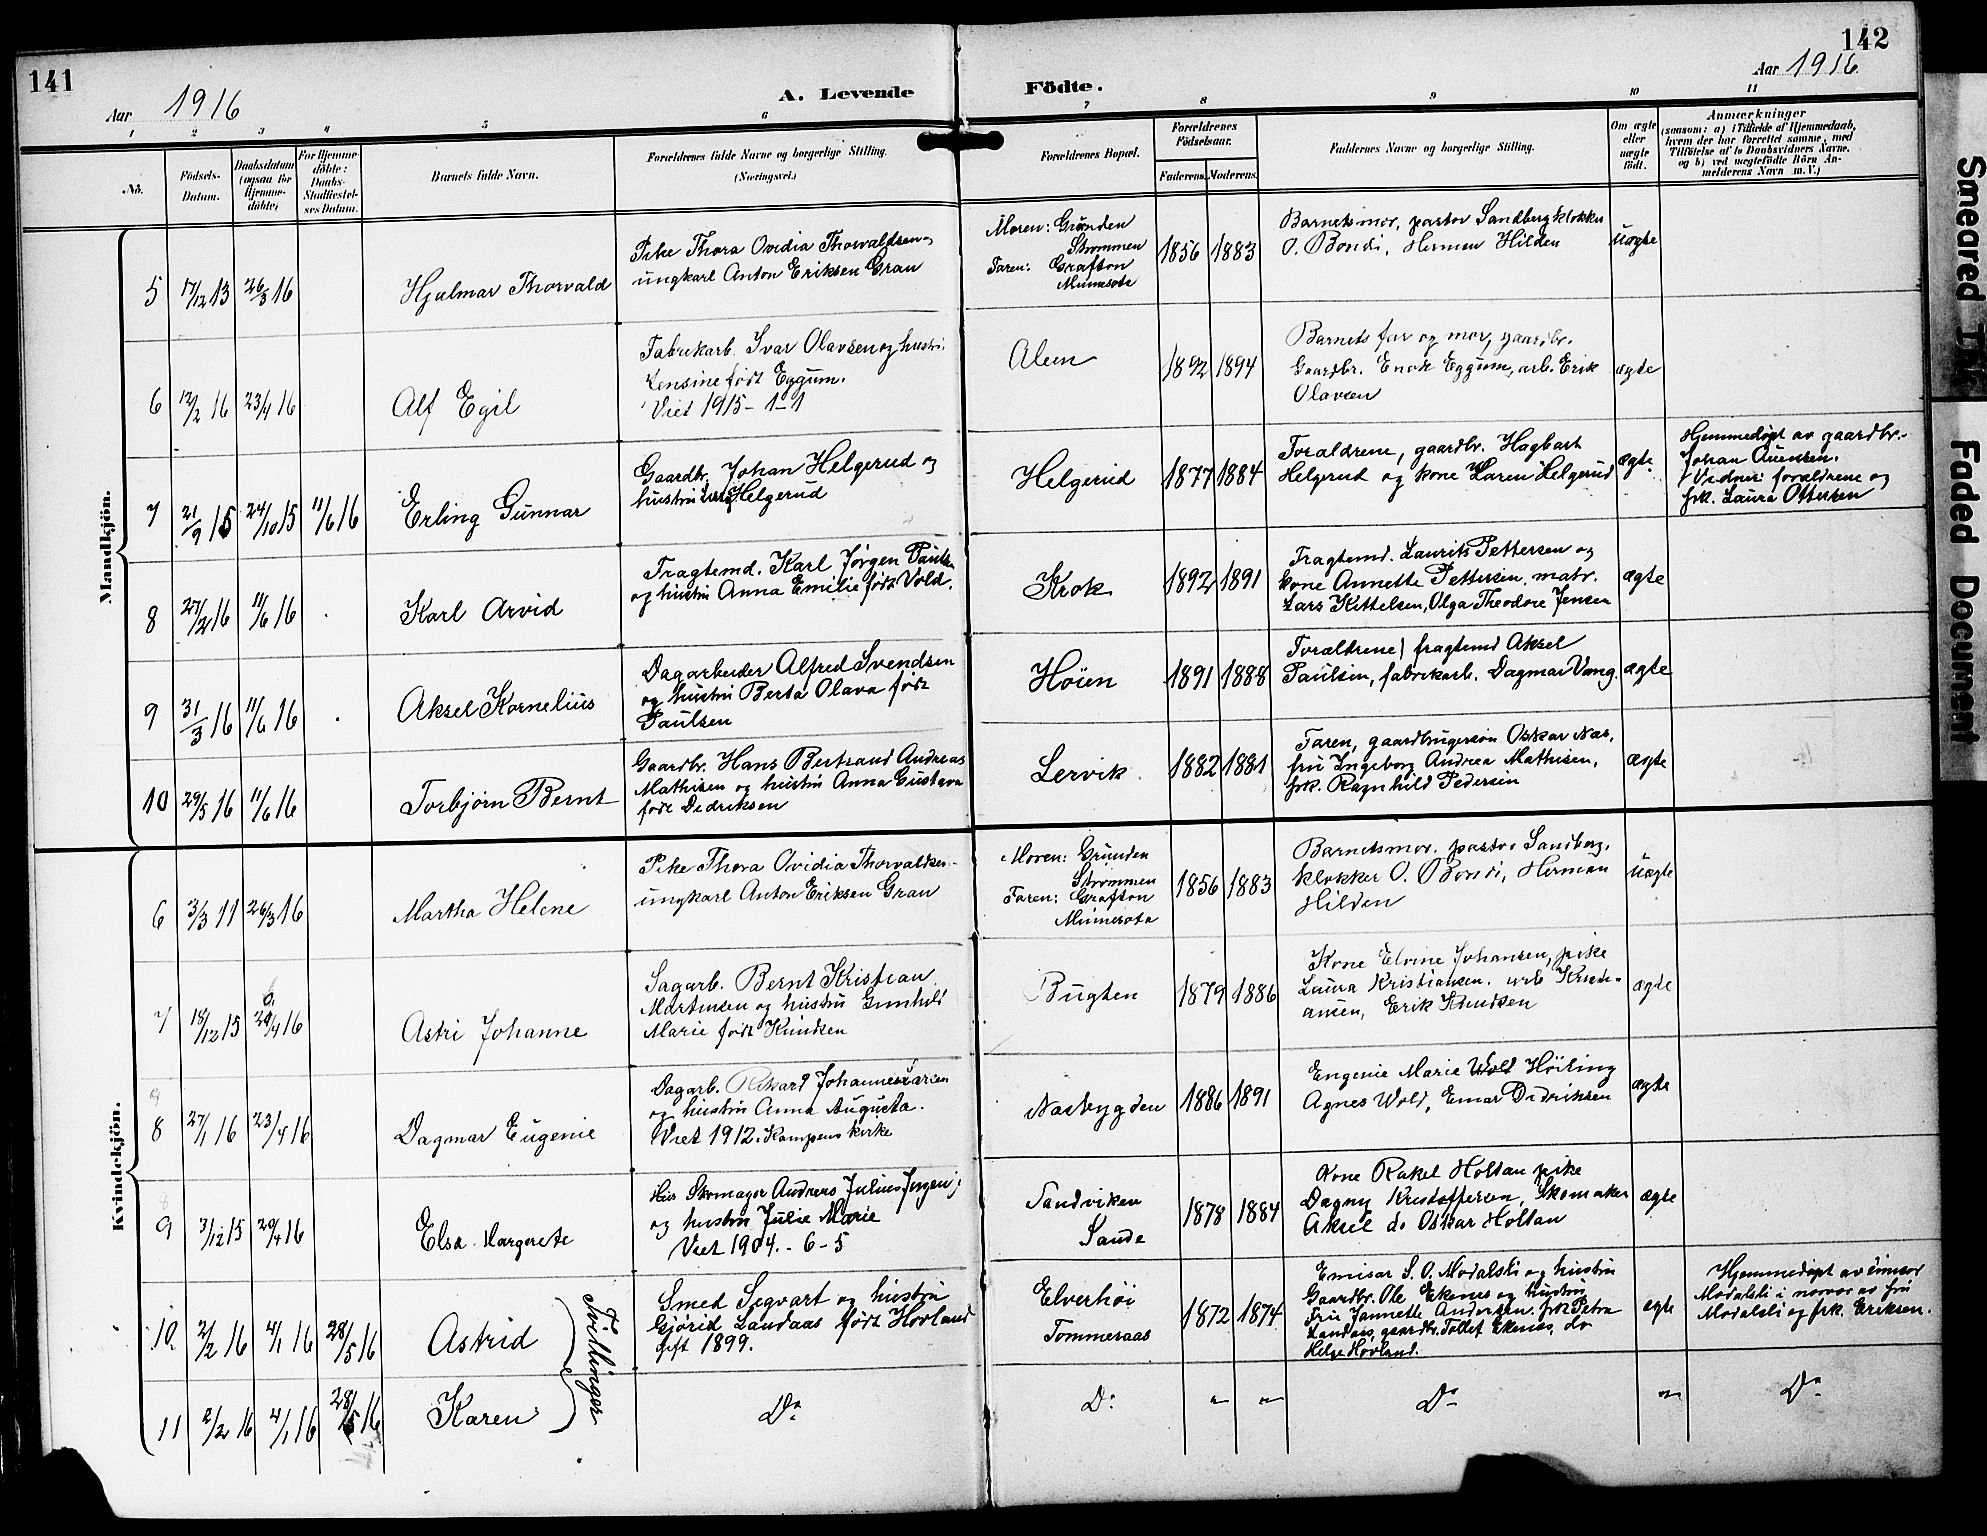 141
142
Aar 1916
A. Levende
Födte.
Aar 1916
1 2 3 4 5 6 7 8 9 10 11
No.
Födsels-
Datum.
Daabsdatum
(ogsaa for
Hjemme-
döbte)
For Hjemme-
döbte:
Daabs-
Stadfæstel-
ses Datum.
Barnets fulde Navn.
Forældrenes fulde Navne og borgerlige Stilling.
(Næringsvei.)
Forældrenes Bopæl.
Forældrenes
Födselsaar.
Faderens. Moderens.
Faddernes Navne og borgerlige Stilling.
Om ægte
eller
uægte
födt.
Anmærkninger
(saasom: a) i Tilfælde af Hjemmedaab,
hvem der har forrettet samme, med
Tilföielse af to Daabsvidners Navne,
og b) ved uægtefödte Börn An-
melderens Navn m. V.)
Mandkjön.
5 17/12 13 26/3 16
Hjalmar Thorvald
Pike Thora Ovidia Thorvaldsen -
ungkarl Anton Eriksen Gran
Moren: Grunden
Strømmen
Faren: Grafton
Minnesota
1856 1883
Barnets mor, pastor Sandberg klokker
O. Bondi, Herman Hilden
uægte
6 12/2 16 23/4 16
Alf Egil
Fabrikarb. Ivar Olavsen og hustru
Jensine født Eggum.
Viet 1915 - 1-1
Alen
1892 1894
Barnets far og mor, gaardbr.
Gaardbr. Enok Eggum, arb. Erik
Olavsen
ægte
7 21/9 15 24/10 15 11/6 16
Erling Gunnar
Gaardbr. Johan Helgerud og
hustru Helgerud
Helgerud
1877 1884
Forældrene, gaardbr. Hagbart
Helgerud og kone Karen Helgerud
ægte
Hjemmedøpt av gaardbr.
Johan Auensen.
Vidner: forældrene og
frk. Laura Ottersen
8 27/2 16 11/6 16
Karl Arvid
Fragtemd. Karl Jørgen Paulsen
og hustru Anna Emilie født Vold.
Krok
1892 1891
Fragtemd. Laurits Pettersen og
kone Annette Pettersen, matr.
Lars Kittelsen, Olga Theodore Jensen
ægte
9 31/3 16 11/6 16
Aksel Kornelius
Dagarbeider Alfred Svendsen
og hustru Berta Olava født
Paulsen
Høien
1891 1888
Forældrene, fragtemd Aksel
Paulsen, fabrikarb. Dagmar Vang.
ægte
10 29/5 16 11/6 16
Torbjørn Bernt
Gaardbr. Hans Bertrand Andreas
Mathisen og hustru Anna Gustava
født Dedriksen
Lervik
1882 1881
Faren, gaardbrugersøn Oskar Næs,
fru Ingeborg Andrea Mathisen,
frk. Ragnhild Pedersen
ægte
Kvindekjön.
6 3/3 11 26/3 16
Martha Helene
Pike Thora Ovidia Thorvaldsen -
ungkarl Anton Eriksen Gran
Moren: Grunden
Strømmen
Faren: Grafton
Minnesota
1856 1883
Barnets mor, pastor Sandberg,
klokker O. Bondi, Herman
Hilden
uægte
7 18/12 15 20/4 16
Astri Johanne
Sagarb. Bernt Kristian
Martinsen og hustru Gunhild
Marie født Knudsen
Bugten
1879 1886
Kone Elvine Johansen, pike
Laura Kristiansen. arb Kristi-
ansen, Erik Knudsen
ægte
8 27/1 16 23/4 16
Dagmar Eugenie
Dagarb. Rikard Johannes Larsen
og hustru Anna Augusta.
Viet 1912 i Kampens kirke
Nærbygden
1886 1891
Engenie Marie Wold Høiling
Agnes Wold, Einar Didriksen
ægte
9 3/12 15 20/4 16
Elsa Margrete
Skomager Andreas Julius Jensen
og hustru Julie Marie
Viet 1904. - 6 - 5
Sandviken
Sande
1878 1884
Kone Rakel Holtan pike
Dagny Kristoffersen, Skomaker
Aksel do Oskar Holtan
ægte
10 2/2 16 4/1 16 28/5 16
Astrid
Tvillinger
Smed Segvart og hustru
Gjørid Landaas født Hovland
gift 1899.
Elverhöi
Tommeraas
1872 1874
Emisær S. O. Modalsli og hustru
Gaardbr. Ole Ekenes og hustru
Fru Jannette Andersen. frk Petra
Landaas, gaardbr. Tollef Ekenes, do
Helge Hovland.
ægte
Hjemmedøpt av emisær
Modalsli i nærvær av fru
Modalsli og frk. Eriksen.
11 2/2 16 4/1 16 28/5 16
Karen
Do
Do
" "
Do
"
Do
Smeared Ink
Faded Document